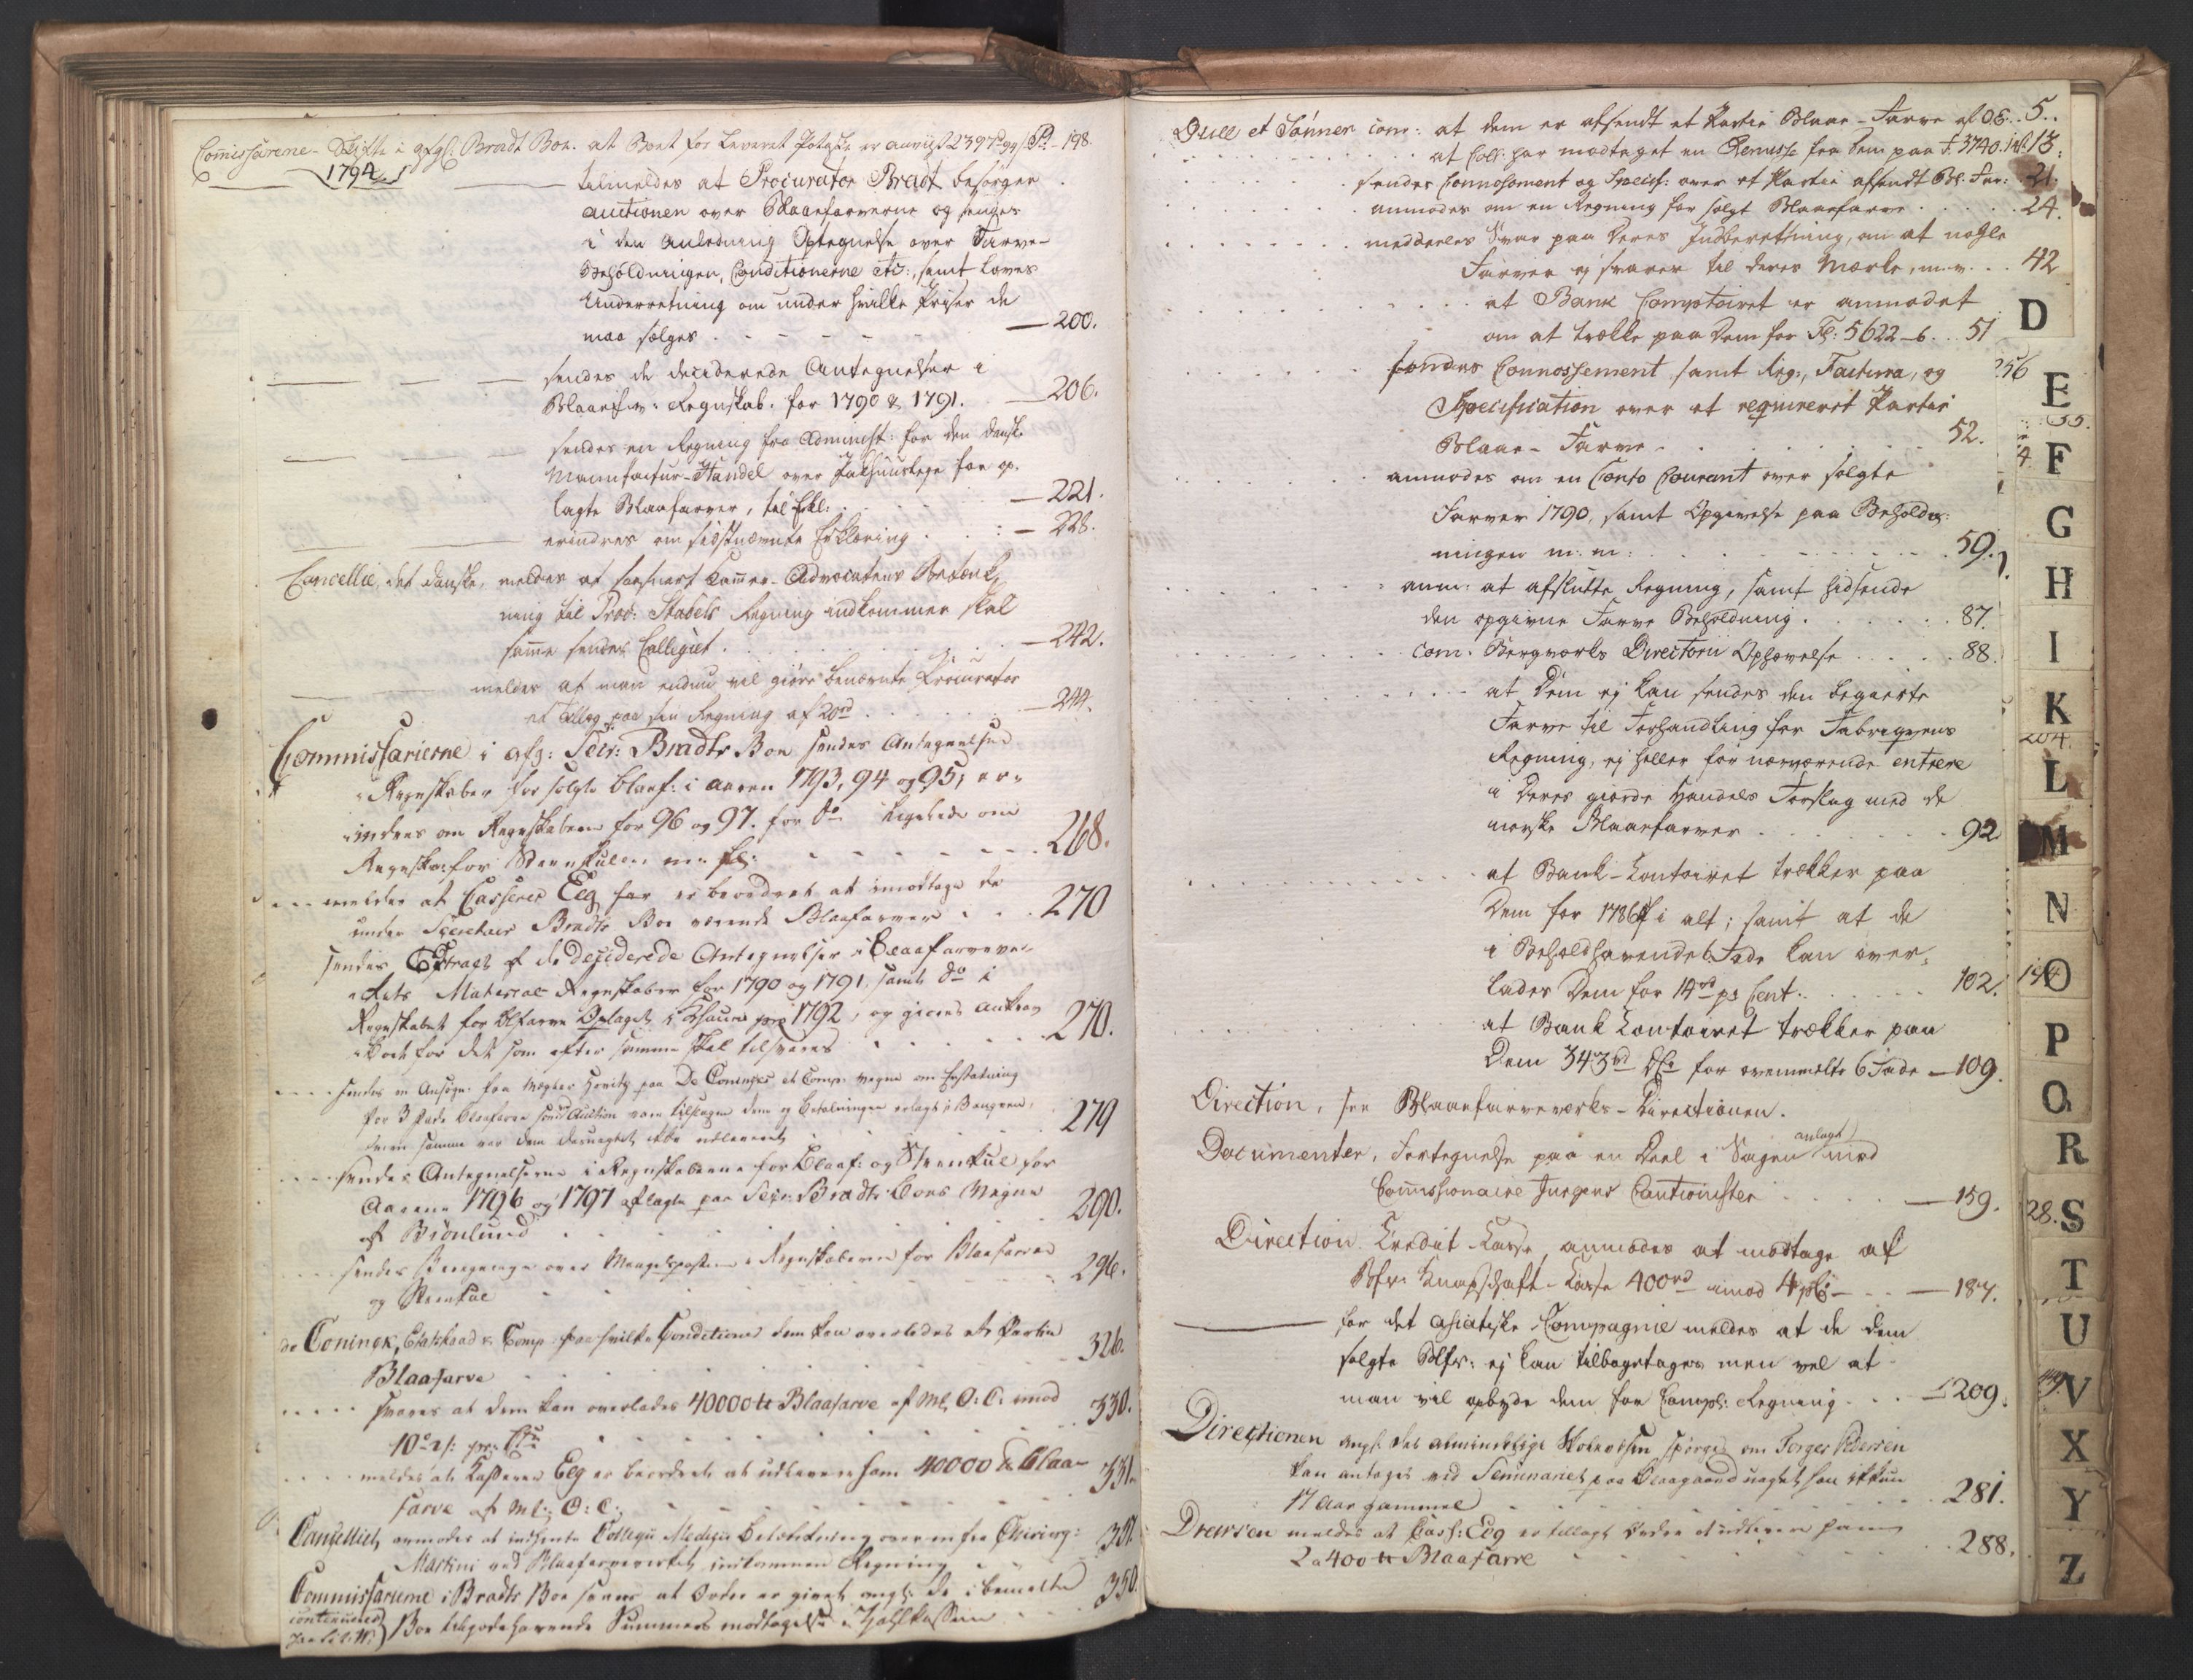 Comissærerne - Skifte i afg. Bradt Boe. at Boet for leveret Potaske er anviist 2397 rd 94 s P. - 198.
1794
tilmeldes at Procurator Bradt besørger
auctionen over Blaaefarverne og senges
i den anledning Optegnelse over Farve-
Beholdningen, Conditionerne etc:, samt loves
Underretning om under hvilke Priser de
maa sælges . - 200.
sendes de deciderede Antegnelser i
Blaaefv: Regnskab. for 1790 & 1791. - 206.
sendes en Regning fra Administ: for den dansk.
Manufactur-Handel over Pakhuusleye for op-
lagte Blaafarver, til Erkl: - 221.
erindres om sidstnævnte Erklæring . - 228.
Cancellie, det danske, meldes at saasnart Cammer-Advocatens Betænk-
ning til Proc: Stabels Regning indkommer skal
samme sendes Collegiet . - 242.
meldes at man endnu vil giøre benævnte Procurator
et Tillæg paa sin Regning af 20 rd - 244.
Commissarierne i afg: Secr: Bradts Boe sendes Antegnelser
Regnskaber for solgte blaaf: i aaren 1793, 94 og 95, er-
indres om Regnskaberne for 96 og 97. for do ligeledes om
Regnsk: for Steenkulen m: fl: 268.
meldes at Casserer Eeg har er beordret at imodtage de
under Secretair Bradts Boe værende Blaafarver . 270
sendes Extract af de Desiderede Antegnelser i Blaafarvever-
kets Material Regnskaber for 1790 og 1791, samt do i
Regnskabet for blfarve Oplaget i Khavn pro 1792, og giøres ansvar
Boet for det som efter samme skal tilsvares 270.
sendes en Ansøgn: fra Mægler Hovitz paa De Coninges et Comp: vegne om Erstatning
for 3 Fade blaafarve som Auction vare tilslagne dem og betalningen erlagt i Banqven,
samme var dem desuagtet ikke udleveret 279
sendes Antegnelserne i Regnskaberne for Blaaf: og Steenkul for
Aarene 1796 og 1797 aflagte paa Secr: Bradts Boes Vegne
af Biønlund 290.
sendes over Mangelsposterne i Regnskaberne for Blaafarver
og Steenkul 296.
de Coninck, Etatsraad & Comp: paa hvilke Conditioner dem kan overlades et Partie
Blaafarve 326.
svares at dem kan overlades 40000 lb Blaafarve af M: O: C: imod
10 pr: Ctr 330.
meldes at Casserer Eeg er beordret at udlevere ham 40000 lb Blaa-
farve af M: O: C: 331.
Cancelliet, anmodes at indhente Collegii Medici Betænkning over en fra Chirurg:
Martini ved Blaafarververket indkommen Regning 351.
Commissarierne i Bradts Boe svares at Ordre er givet angl: de i bemeldte
continueres Boe tilgodehavende Summers modtagelse i Zahlkassen 350.
Dull et Sønner com: at dem er afsendt et Partie Blaae-Farve af OE. . 5. .
at Coll: har modtaget en Remisse fra dem paa f 3740. 13.
sendes Connosement og Specif: over et Partie afsendt Bl: Far: 21.
anmodes om en Regning for solgt Blaaefarve . 24.
meddeeles Svar paa deres Indberetning, om at nogle
Farver ej svarer til deres Mærke, m. v. . 42
at Bank Comptoiret er anmodet
om at trække paa dem for Fl: 5622-6. . 51
sendes Connossement samt Reg:, Factura, og
Specification over et reqvireret Partie
Blaae-Farve . 52.
anmodes om en Conto Courant over solgte
Farver 1790, samt Opgivelse paa Behold-
ningen m. m: . 59.
anm: at afslutte Regning, samt hidsende
den opgivne Farve Beholdning . 87.
com. Bergverks Directorii Ophævelse . 88.
at Dem ej kan sendes den begærte
Farve til Forhandling for Fabriqvens
Regning, ej heller for nærværende entrere
i Deres giorde Handels Forslag med de
norske Blaaefarver . 92
at Bank-Contoiret trækker paa
Dem for 1786 f i alt; samt at de
i Behold havende Fade kan over-
lades Dem for 14 rd pr Cent. 102.
at Bank Contoiret trækker paa
Dem 343 rd for ommeldte 6 Fade - 109.
Direction, see Blaaefarveverks-Directionen.
Documenter, Fortegnelse paa en Deel i Sagen anlagt mod
Commissionaire Jurgens Cautionister - 159.
Direction Credit-Casse, anmodes at modtage af
Blfv: Knapschaft-Casse 400 rd imod 4 pCt - 187.
for det asiatiske Compagnie meldes at de dem
solgte Blfv: ej kan tilbagetages men vel at
man vil opbyde dem for Compl: Regning . - 209.
Directionen angl: det almindelige Skolevæsen spørges om Torger Pedersen
kan antages ved Seminariet paa Blaagaard uagtet han ikkun
17 Aar gammel 281.
Drewsen meldes at Cass: Eeg er tillagt Ordre at udlevere ham
2 a 400 lb Blaafarve 288.
D
E
F
G
H
I
K
L
M
N
O
P
Q
R
S
T
U
V
X
Y
Z